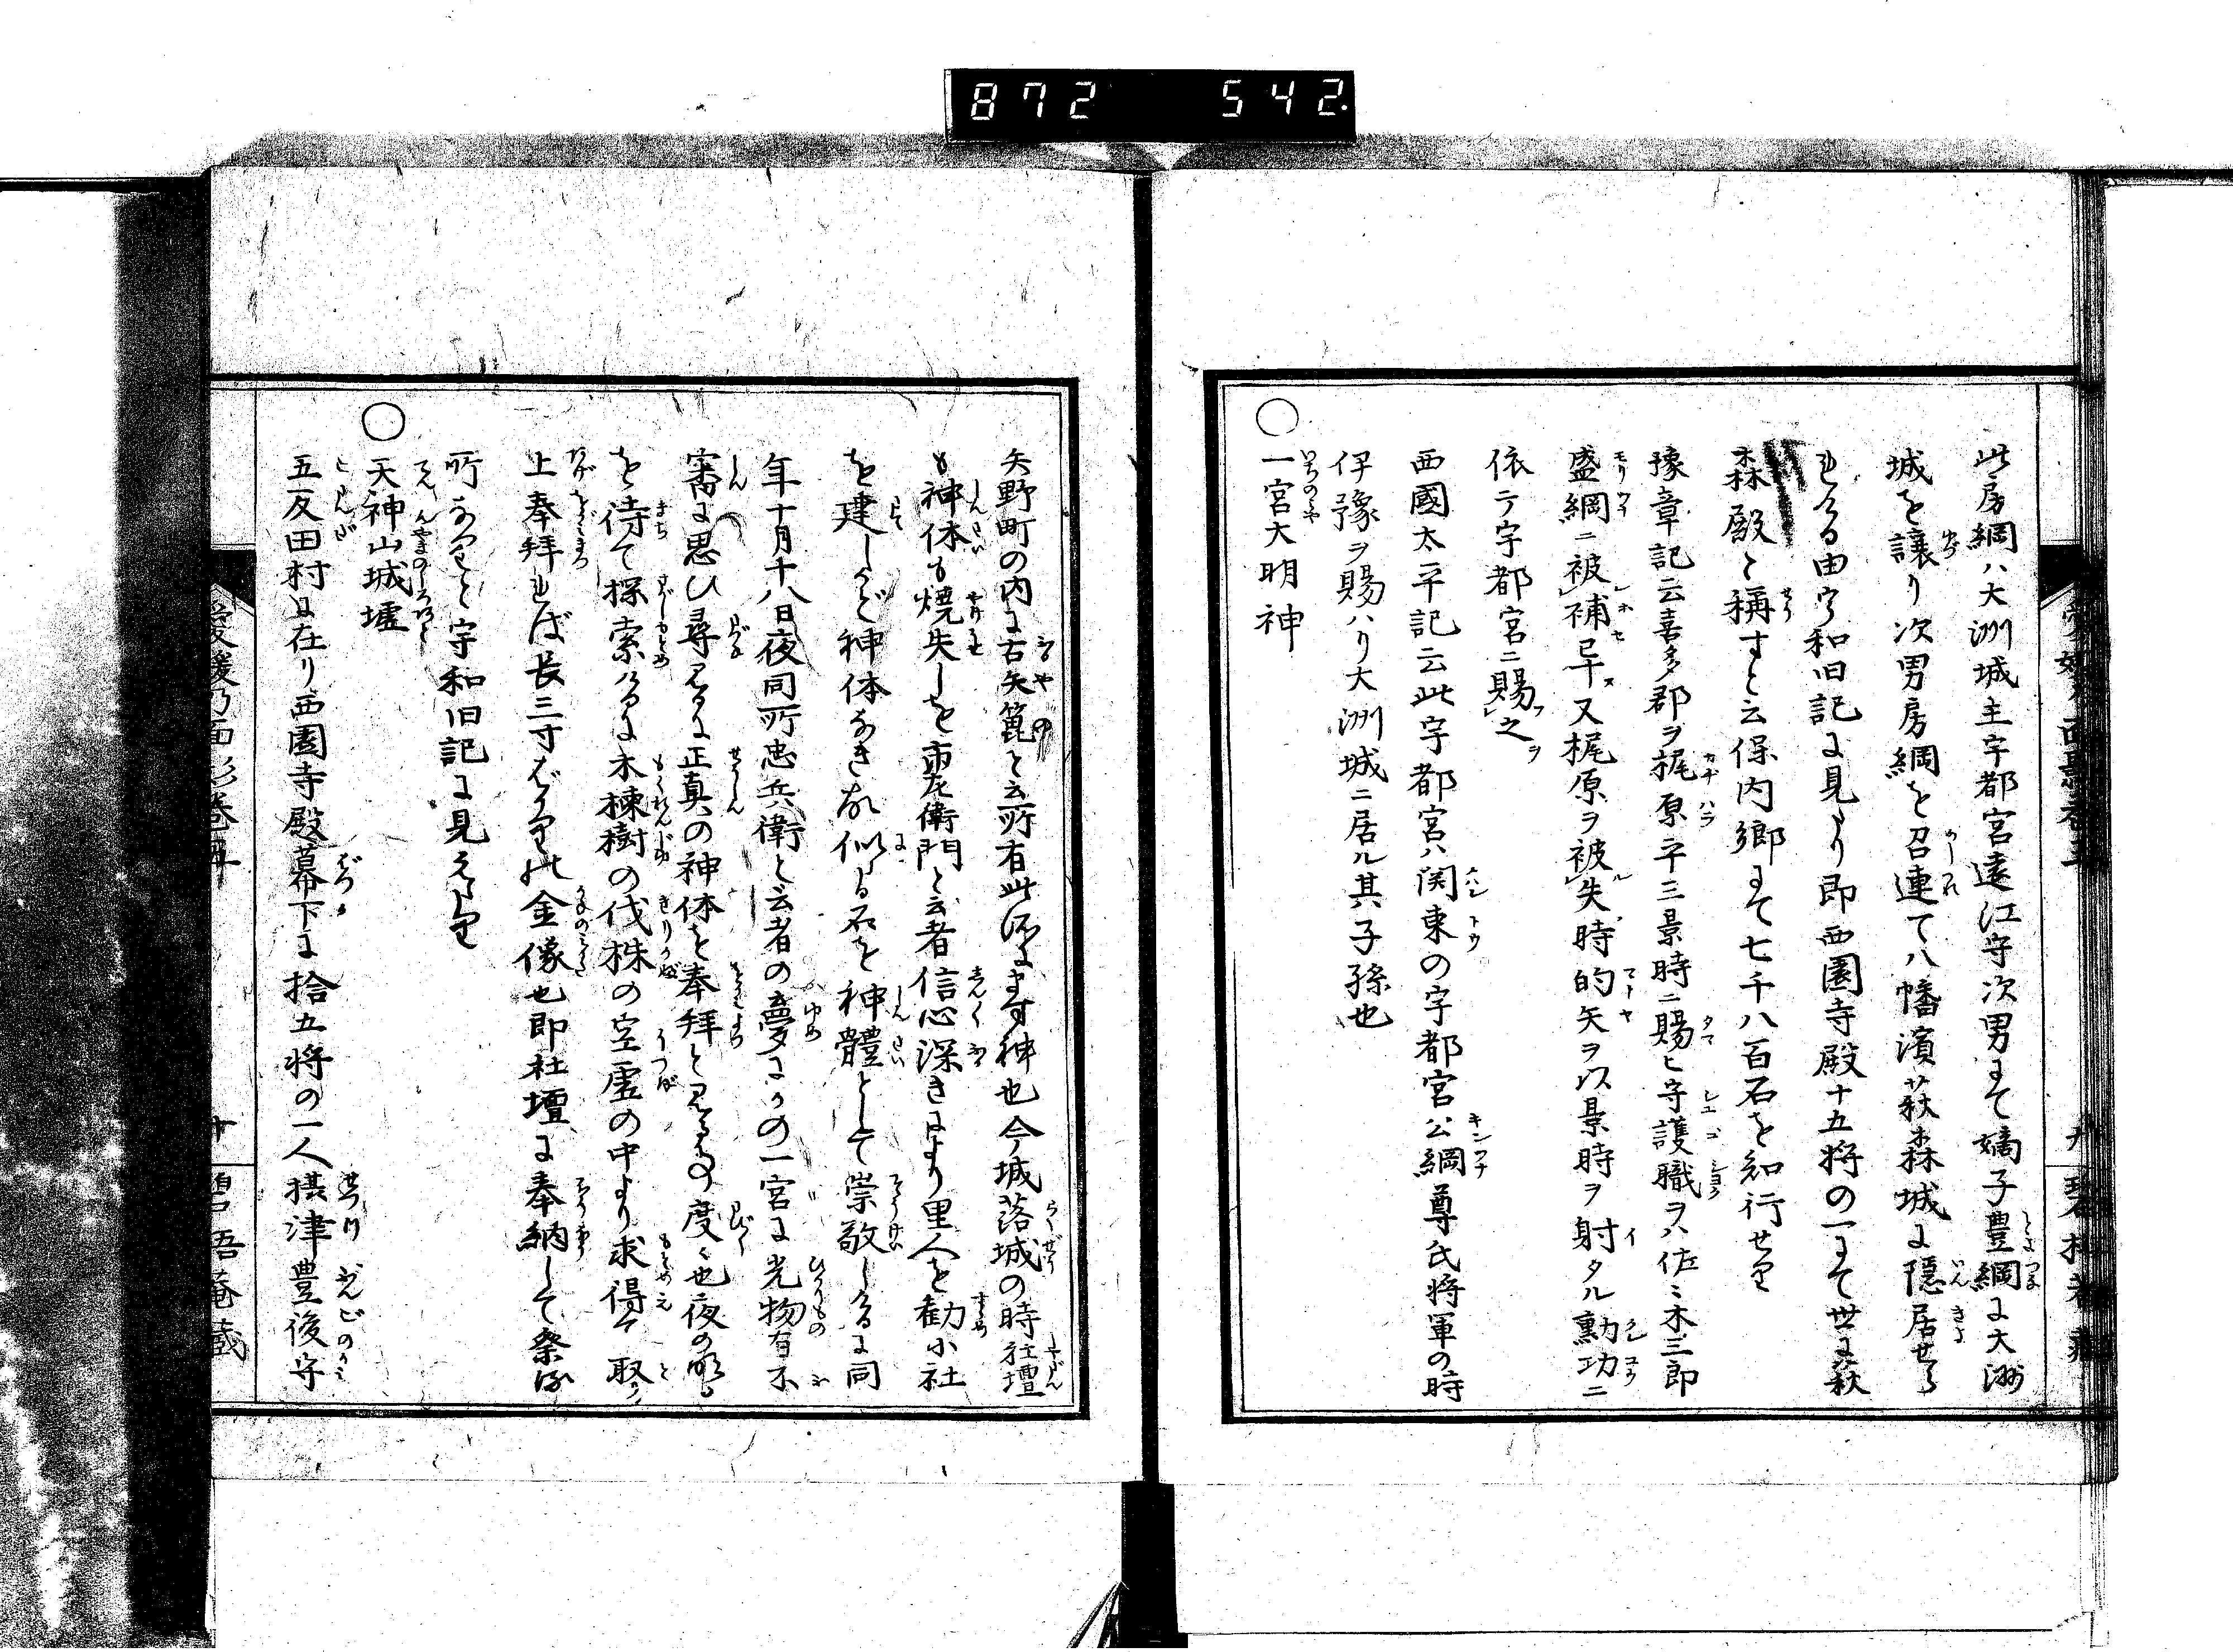 872 542
此房綱ハ大洲城主宇都宮遠江守次男にて嫡子豊綱に大洲
城を譲り次男房綱を召連て八幡濱萩森城に隠居せら
れたる由宇和旧記に見えたり即西園寺殿十五将の一にて世に萩
森殿と稱すと云保内郷にて七千八百石を知行せり
豫章記云喜多郡ヲ梶原平三景時ニ賜ヒ守護職ヲハ佐々木三郎
盛綱ニ被補早又梶原ヲ被失時的矢ヲ以景時ヲ射タル勲功ニ
依テ宇都宮ニ賜之
西國太平記云此宇都宮ハ関東の宇都宮公綱尊氏将軍の時
伊豫ヲ賜ハリ大洲城ニ居ル其子孫也
○一宮大明神
矢野町の内に古矢箆と云所有此所にます神也今城落城の時社壇
も神体も焼失しを市左衛門と云者信心深きにより里人を勧小社
を建しかど神体なき故似たる石を神體として崇敬しけるに同
年十月十八日夜同所忠兵衛と云者の夢にかの一宮に光物有不
審に思ひ尋みるに正真の神体を奉拜と見る事度々也夜の明る
を待て探索けるに木楝樹の伐株の空虚の中より求得て取り
上奉拜れば長三寸ばかりの金像也即社壇に奉納して祭る
所なりと宇和旧記に見えたり
○天神山城墟
五反田村に在り西園寺殿幕下に拾五将の一人摂津豊後守
愛媛乃面影巻五 十 碧梧菴蔵